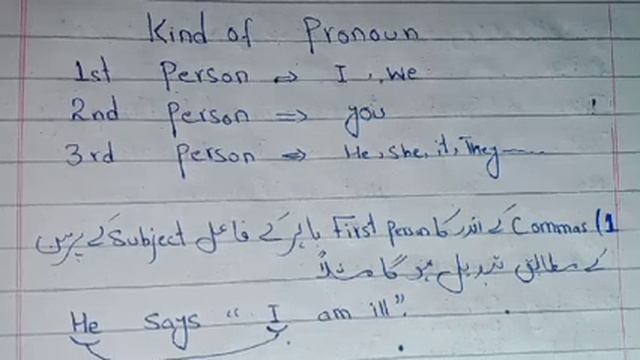 Kind of Pronoun
1st Person ⇒ I, we
2nd Person ⇒ you
3rd Person ⇒ He, She, it, They
1) Commas کے اندر کا First Person باہر کے فاعل Subject کے پرسن
کے مطابق تبدیل ہو گا مثلاً
He says "I am ill".